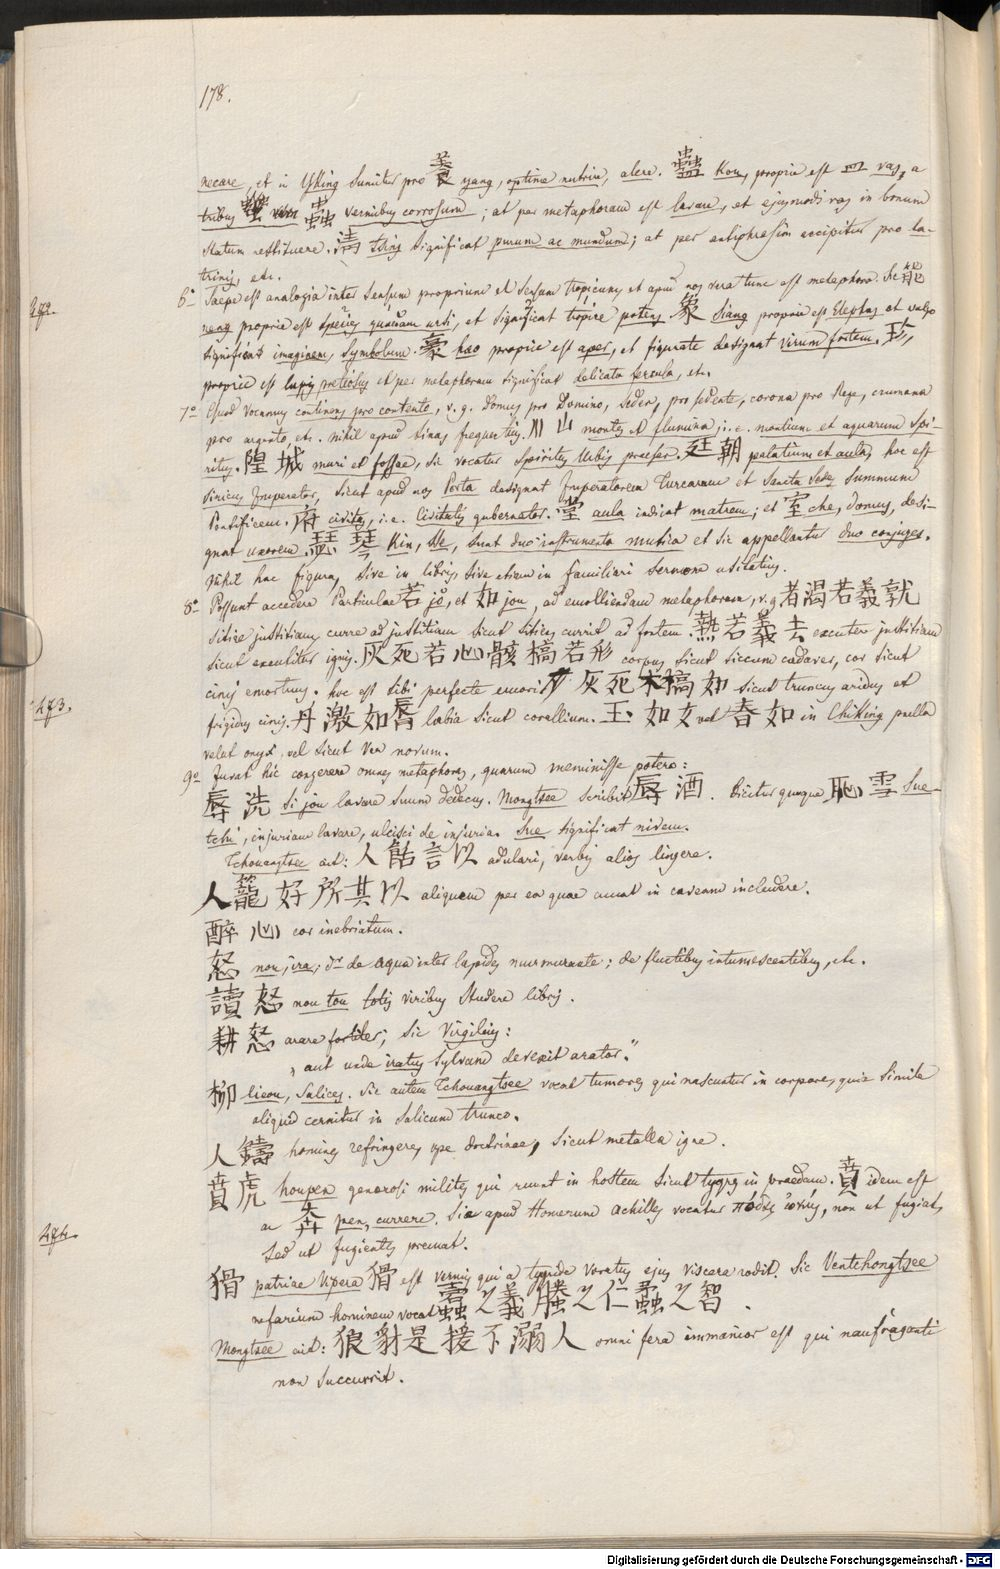 178.
necare, et in Yking sumitur pro 養 yang, optime nutrire, alere. 蠱 Kou, proprie est 皿 vas, a
tribus 蟲 vermibus corrosum; at per metaphoram est lavare, et ejusmodi vas in bonum
statum restituere. 清 tsing significat purum ac mundum; at per antiphrasim accipitur pro la-
trinis, etc.
6° Saepe est analogia inter sensum proprium et sensum tropicum, et apud nos vera tunc est metaphora. Sic 能
neng proprie est species quaedam ursi, et significat tropice potens. 象 siang proprie est Elephas et vulgo
significat imaginem, symbolum. 豪 hao proprie est aper, et figurate designat virum fortem.
proprie est lapis pretiosus et per metaphoram significat delicata fercula, etc.
272.
7° Apud vocamus continens pro contento, v. g. Domus pro Domino, sedens, pro sedente, corona pro Rege, crumena
pro argento, etc. nihil apud Sinas frequentius. 川 山 montes et flumina, i. e. montium et aquarum spi-
ritus. 隍 城 muri et fossae, sic vocatur spiritus Urbis praeses. 廷 朝 palatium et aula, hoc est
Sinicus Imperator, sicut apud nos Porta designat Imperatorem Turcarum et Sancta Sedes summum
Pontificem. 府 civitas, i. e. Civitatis gubernator. 堂 aula indicat matrem; et 室 che, domus, desi-
gnat uxorem. 瑟 琴 Kin, se, sunt duo instrumenta musica et sic appellantur duo conjuges.
Nihil hac figura, sive in libris sive etiam in familiari sermone usitatius.
8° Possunt accedere Particulae 若 jo, et 如 jou, ad emolliendam metaphoram, v. g 者渴若義就
sitire justitiam, curre ad justitiam sicut sitiens currit ad fontem. 熱若義去 excutere justitiam
sicut excutitur ignis. 灰死若心骸槁若形 corpus sicut siccum cadaver, cor sicut
cinis emortuus. hoc est sibi perfecte emori. 灰死木槁如 sicut truncus aridus et
273.
frigidus cinis. 丹激如脣 labia sicut corallium. 玉如女 vel 春如 in Chiking puella
velut onyx, vel sicut Ver novum.
9° Juvat hic congerere omnes metaphoras, quarum meminisse potero:
辱洗 si jou lavare suum dedecus. Mongtsee scribit 辱洒. Dicitur quoque 恥雪 Sue-
tchi, injuriam lavare, ulcisci de injuria. Sue significat nivem.
Tchouangtsee ait: 人餂言以 adulari, verbis alios lingere.
人籠好所其以 aliquem per ea quae amat in caveam includere.
醉心 cor inebriatum.
怒 nou, ira; dr de aqua inter lapides murmurante; de fluctibus intumescentibus, etc.
讀怒 nou tou totis viribus studere libris.
耕怒 arare fortiter; sic Virgilius:
„aut unde iratus sylvam devexit arator."
柳 lieou, Salices. Sic autem Tchouangtsee vocat tumores qui nascuntur in corpore, quia simile
aliquid cernitur in Salicum trunco.
人鑄 homines refringere, ope doctrinae, sicut metalla igne.
賁虎 houpen generosi milites qui ruunt in hostem sicut tygris in praedam. 賁 idem est
ac 奔 pen, currere. Sic apud Homerum Achilles vocatur πόδας ὠκύς, non ut fugiat,
274.
sed ut fugientes premat.
猾 patriae Vipera 猾 est vermis qui a tygride voratus ejus viscera rodit. Sic Ventchongtsee
nefarium hominem vocat 蠹之義螣之仁蟊之智.
Mongtsee ait: 狼豺是援不溺人 omni fera immanior est qui naufraganti
non succurrit.
Digitalisierung gefördert durch die Deutsche Forschungsgemeinschaft - DFG